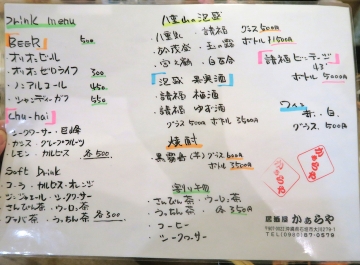 Drink menu
BEER 500
オリオンビール
オリオンゼロライフ 300
ノンアルコール 450
シャンディーガフ 550
Chu-hai
シークワーサー・巨峰
カシス・グレープフルーツ
レモン・カルピス 各500
Soft Drink
コーラ・カルピス・オレンジ
ジンジャエール・シークワーサー
さんぴん茶・ウーロン茶
グァバ茶・うっちん茶 各300
八重山の泡盛
八重泉・請福 グラス500円
於茂登・玉の露 ボトル1500円
宮之鶴・白百合
泡盛 果実酒
・請福 梅酒
・請福 ゆず酒
グラス500円 ボトル3500円
焼酎
・黒霧島(芋) グラス600円
ボトル3500円
割り物
・さんぴん茶・ウーロン茶
・うっちん茶 各350円
・コーヒー
・シークワーサー
請福ビンテージ
43°
ボトル5000円
ワイン
赤・白
グラス500円
居酒屋 かぁらや
TEL(0980)87-0579